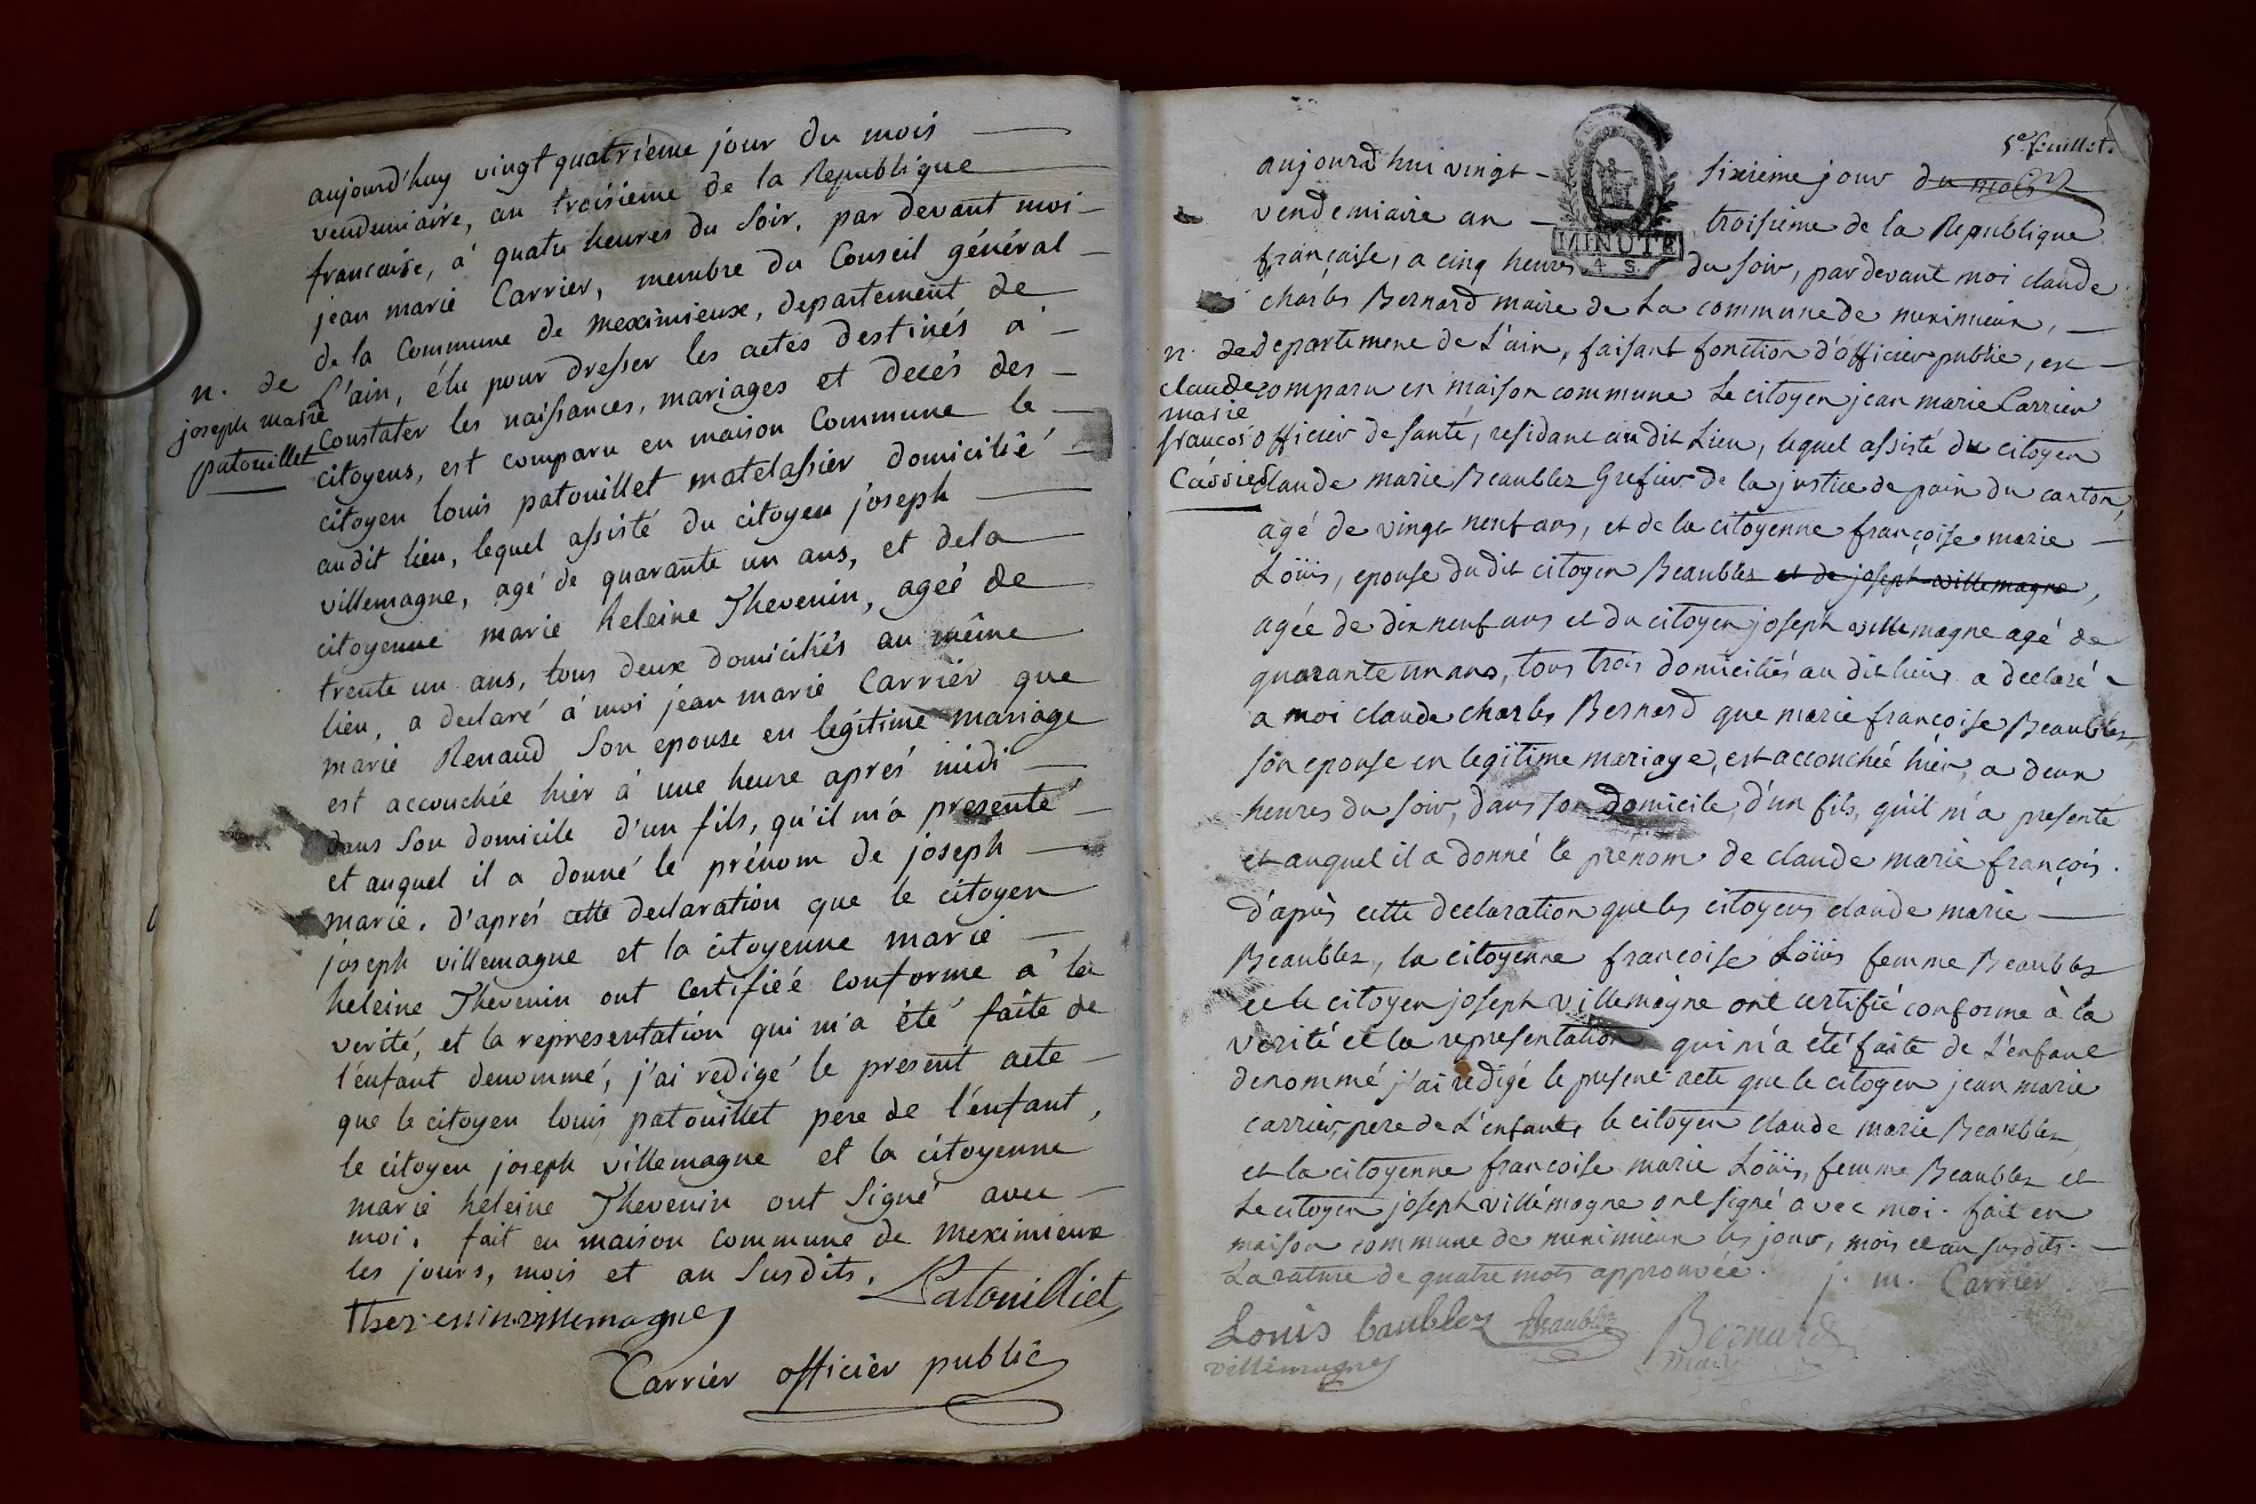 aujourd'huy vingt quatriéme jour du mois
vendemiaire, an troisieme de la Republique
francaise, a quatre heures du Soir, par devant moi
jean marie Carrier, membre du Conseil général
de la Commune de meximieux, departement de
L'ain, élu pour dresser les actes destinés a
n. de
joseph marie
patouillet
Constater les naissances, mariages et decés des
citoyens, est comparu en maison Commune le
citoyen louis patouillet matelassier domicilié
audit lieu, lequel assisté du citoyen joseph
villemagne, agé de quarante un ans, et de la
citoyenne marie heleine Thevenin, ageé de
trente un ans, tous deux domiciliés au même
lieu, a declaré a moi jean marie Carrier que
marie Renaud Son epouse en legitime mariage
est accouchée hier a une heure aprés midi
dans Son domicile d'un fils, qu'il m'a presenté
et auquel il a donné le prénom de joseph
marie. d'aprés cette declaration que le citoyen
joseph villemagne et la citoyenne marie
heleine Thevenin ont certifieé conforme a la
verité, et la representation qui m'a été faite de
l'enfant denommé, j'ai redigé le present acte
que le citoyen louis patouillet pere de l'enfant,
le citoyen joseph villemagne et la citoyenne
marie heleine Thevenin ont Signé avec
moi. fait en maison commune de meximieux
les jours, mois et an Susdits.
Patouilliet
Thevenin villemagne
Carrier officier public
5e feuillet.
MINUTE
4 S.
aujourd'hui vingt sixieime jour du mois
vendemiaire an troisieme de la Republique
française, a cinq heures du soir, par devant moi claude
charles Bernard maire de La commune de meximieux,
n. de
claude
marie
francois
Carrier
departement de L'ain, faisant fonction d'officier public, est
comparu en maison commune Le citoyen jean marie Carrier
officier de santé, residant au dit Lieu, lequel assisté du citoyen
claude marie Beaublez Grefier de la justice de paix du canton
agé de vingt neuf ans, et de la citoyenne françoise marie
Loüis, epouse du dit citoyen Beaublez et de joseph villemagne,
agée de dix neuf ans et du citoyen joseph villemagne agé de
quarante un ans, tous trois domiciliés au dit lieu, a declaré
a moi claude charles Bernard que marie françoise Beaublez,
son epouse en legitime mariage, est accouchée hier, a deux
heures du soir, dans son domicile, d'un fils, qu'il m'a presenté
et auquel il a donné le prénom de claude marie françois.
d'après cette declaration que les citoyens claude marie
Beaublez, la citoyenne francoise Loüis femme Beaublez
et le citoyen joseph villemagne ont certifié conforme à la
verité et la representation qui m'a été faite de L'enfant
denommé j'ai redigé le present acte que le citoyen jean marie
carrier, pere de L'enfant, le citoyen claude marie Beaublez
et la citoyenne francoise marie Loüis, femme Beaublez et
Le citoyen joseph villemagne ont signé avec moi. fait en
maison commune de meximieux les jour, mois et an susdits.
La rature de quatre mots approuvée. j. m. Carrier
Louis baublez Beaublez Bernard
villemagne maire